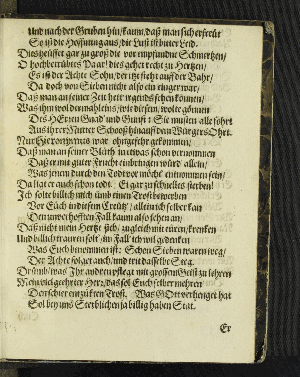 Und nach der Gruben hin/ kaum/ daß man sich erfreüt
So ist die Hoffnung aus/ die Lust ist eitel Leid.
Dis heüffet gar zu groß die vor empfundne Schmertzen/
O hochbetrübtes Paar! dies gehet recht zu Hertzen/
Es ist der Achte Sohn/ der itzt steht auf der Bahr/
Da doch von Sieben nicht also ein einger war/
Daß man an seiner Zeit hett irgends sehen können/
Was ihn wol dermahleins/ wie diesen/ wolte gönnen
Des HErren Gnad' und Gunst: Sie musten alle fohrt
Aus ihrer Mutter Schooß hinauf den Würgers Ohrt.
Nur Hieronymus war ohngefehr gekommen/
Daß man an seiner Blüth in etwas schon vernommen
Daß er mit guter Frucht einbringen würd' allein/
Was jenen durch den Todt vor möcht entnommen sein/
Da ligt er auch schon todt. Ei gar zu schnelles sterben!
Ich solte billich mich ümb einen Trost bewerben
Vor Euch in diesem Creütz/ allein ich selber kan
Den unverhofften Fall kaum also sehen an/
Daß nicht mein Hertz sich/ zugleich mit rüren/ krenken
Und billich trauren solt'/ im Fall' ich wil gedenken
Was Euch benommen ist: Schon Sieben waren weg/
Der Achte folget auch/ und tritt dasselbe Steg.
Drümb/ was Ihr andren pflegt mit großem Geist zu lehren
Mein vielgeehrter Herr/ das sol Euch selber mehren
Den schier entzükten Trost. Was GOtt verhenget hat
Sol bey uns Sterblichen ja billig haben Stat.
Er